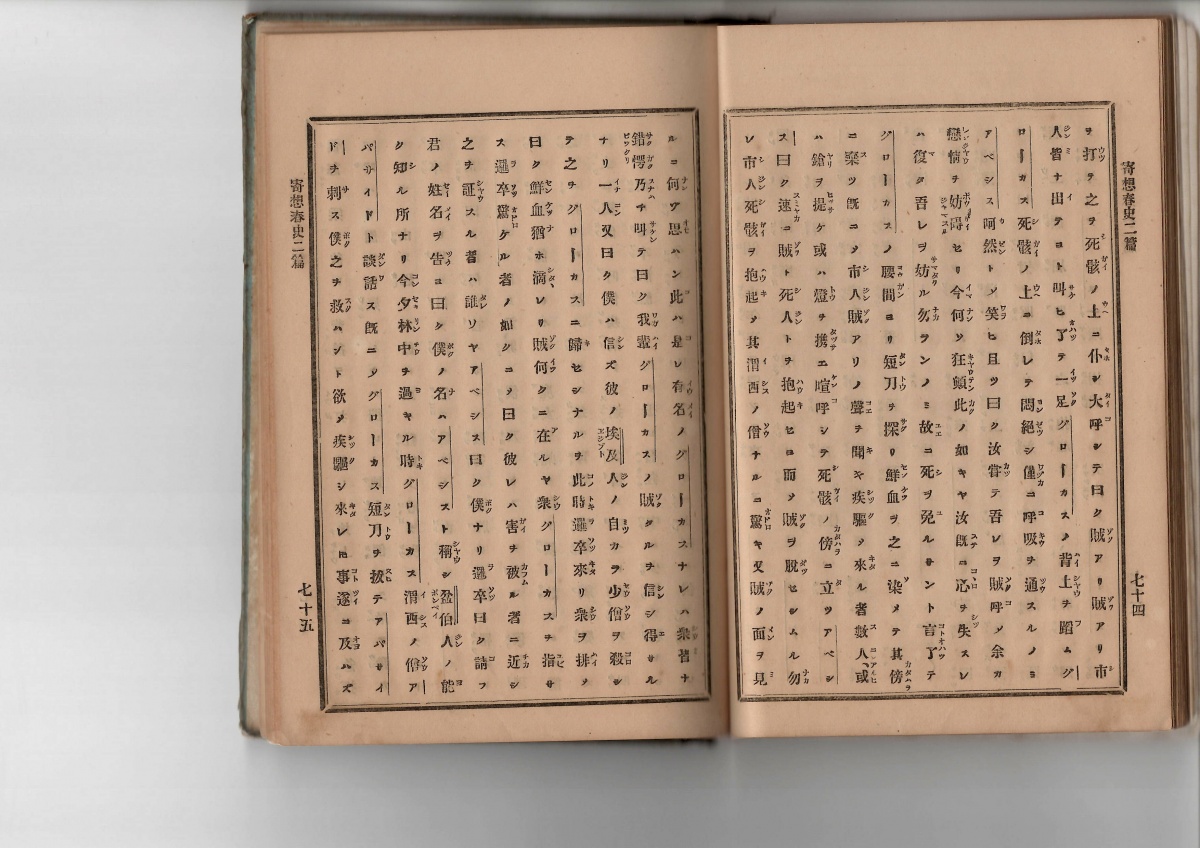 寄想春史二篇
七十四
ヲ打テ之ヲ死骸ノ上ニ仆シ大呼シテ曰ク賊アリ賊アリ市
人皆ナ出テヨト叫ヒ了テ一足グローカスノ背上ヲ蹈ムグ
ローカス死骸ノ上ニ倒レテ悶絕シ僅ニ呼吸ヲ通スルノミ
アベシス呵然トメ笑ヒ且ツ曰ク汝甞テ吾レヲ賊呼メ余カ
戀情ヲ妨碍セリ今何ソ狂顚此ノ如キヤ汝旣ニ心ヲ失スレ
ハ復タ吾レヲ妨ル勿ランノミ故ニ死ヲ免ルサント言了テ
グローカスノ腰間ヨリ短刀ヲ探リ鮮血ヲ之ニ染メテ其傍
ニ棄ツ旣ニメ市人賊アリノ聲ヲ聞キ疾驅メ來ル者數人或
ハ鎗ヲ提ケ或ハ燈ヲ携エ喧呼シテ死骸ノ傍ニ立ツアベシ
ス曰ク速ニ賊ト死人トヲ抱起セヨ而メ賊ヲ脫セシムル勿
レ市人死骸ヲ抱起メ其渭西ノ僧ナルニ驚キ又賊ノ面ヲ見
ルニ何ゾ思ハン此ハ是レ有名ノグローカスナレハ衆皆ナ
錯愕乃チ叫テ曰ク我輩グローカスノ賊タルヲ信シ得サル
ナリ一人又曰ク僕ハ信ズ彼ノ埃及人ノ自カラ少僧ヲ殺シ
テ之ヲグローカスニ歸セシナルヲ此時邏卒來リ衆ヲ排メ
曰ク鮮血猶ホ滴レリ賊何クニ在ルヤ衆グローカスヲ指サ
ス邏卒驚ケル者ノ如クニメ曰ク彼レハ害ヲ被ル者ニ近シ
之ヲ証スル者ハ誰ソヤアベシス曰ク僕ナリ邏卒曰ク請フ
君ノ姓名ヲ告ヨ曰ク僕ノ名ハアベシスト稱シ盈伯人ノ能
ク知ル所ナリ今夕林中ヲ過キル時グローカス渭西ノ僧ア
パサイドト談話ス旣ニメグローカス短刀ヲ拔テアパサイ
ドヲ刺ス僕之ヲ救ハント欲メ疾驅シ來レヒ事遂ニ及ハズ
寄想春史二篇
七十五